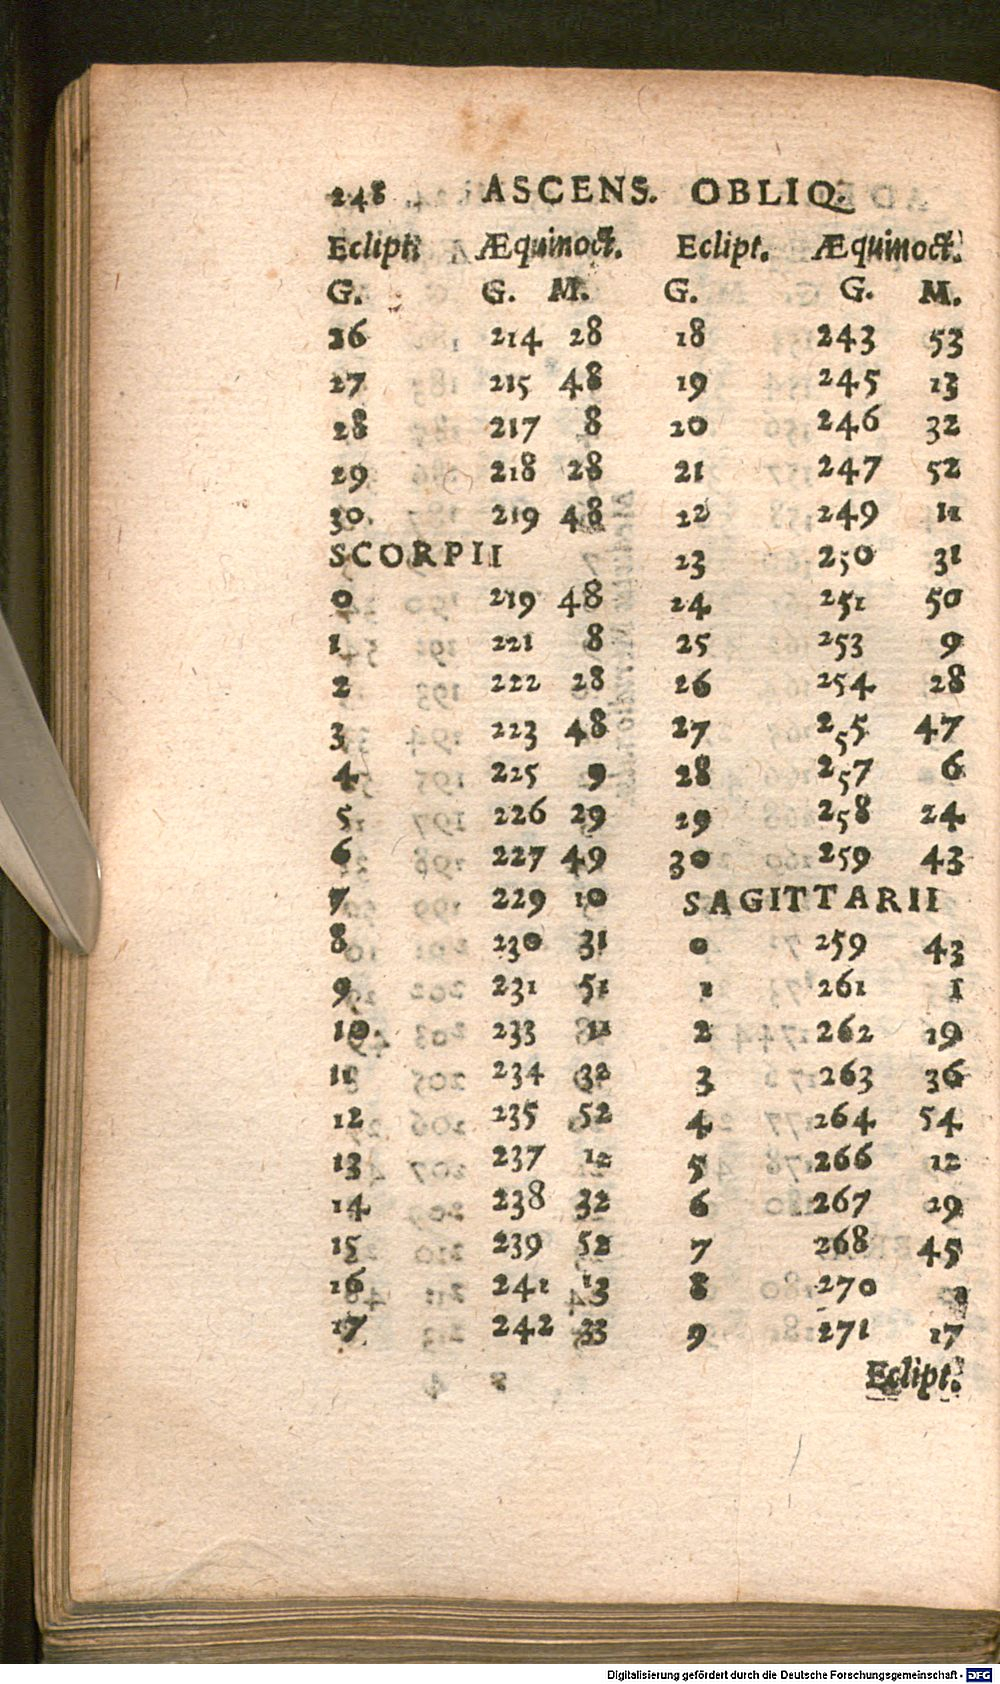 248 ASCENS. OBLIQ.
Eclipt. Æquinoct. Eclipt. Æquinoct.
G. G. M. G. G. M.
26 214 28 18 243 53
27 215 48 19 245 13
28 217 8 20 246 32
29 218 28 21 247 52
30. 219 48 22 249 11
SCORPII 23 250 31
0 219 48 24 251 50
1 221 8 25 253 9
2 222 28 26 254 28
3 223 48 27 255 47
4 225 9 28 257 6
5 226 29 29 258 24
6 227 49 30 259 43
7 229 10 SAGITTARII
8 230 31 0 259 43
9 231 51 1 261 1
10 233 11 2 262 19
11 234 32 3 263 36
12 235 52 4 264 54
13 237 12 5 266 12
14 238 32 6 267 29
15 239 52 7 268 45
16 241 13 8 270
17 242 33 9 271 17
Eclipt.
Digitalisierung gefördert durch die Deutsche Forschungsgemeinschaft - DFG